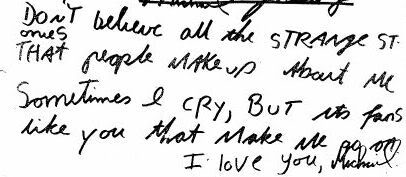 DON'T believe all the STRANGE ST-
ones
THAT people MAKE up About me
Sometimes I CRY, BUT its fans
like you that Make Me go on
I love you, Michael